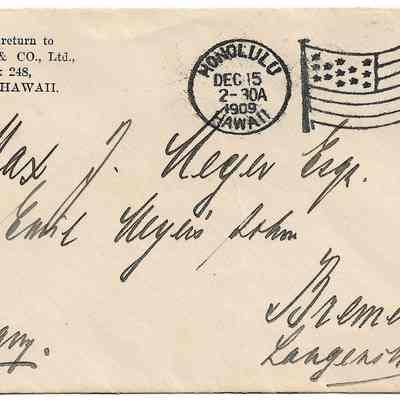 return to
& CO., Ltd.,
248,
HAWAII.
HONOLULU
DEC 15
2-30A
1909
HAWAII
Max J. Meyer Esqr.
Emil Meyer's Sohn
Breme
any.